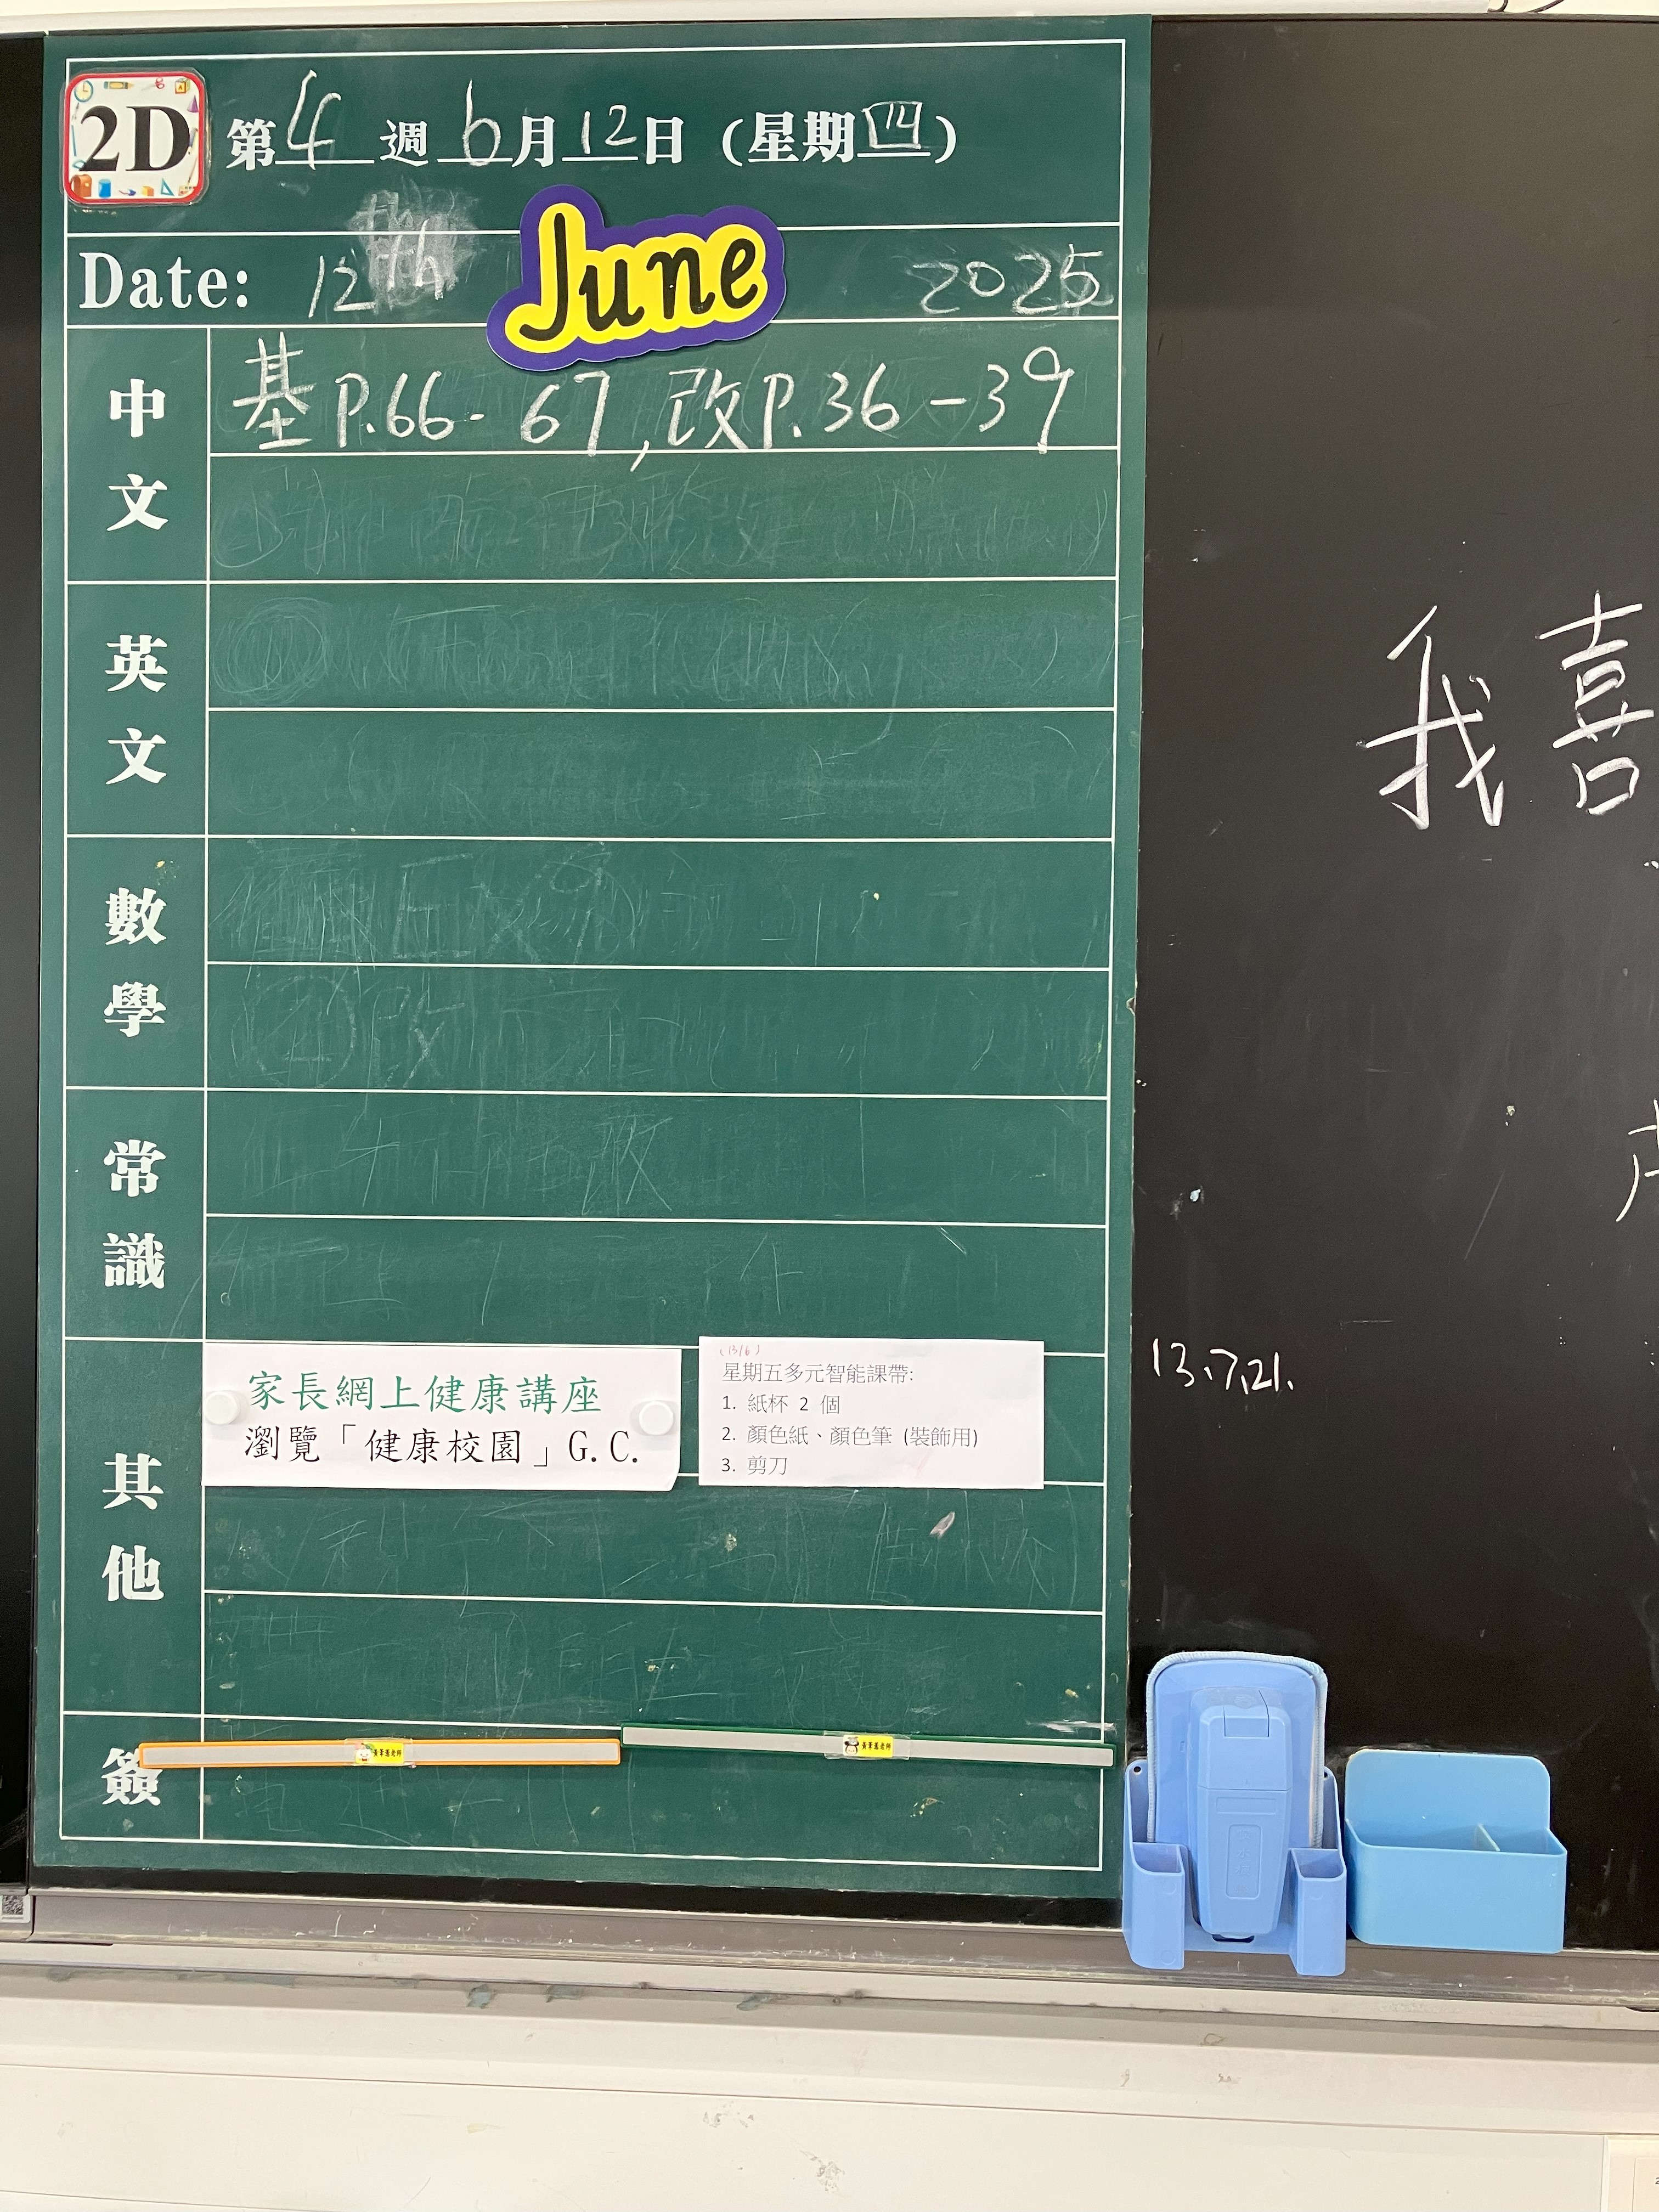 2D
第4週 6月12日 (星期四)
Date: 12th June 2025
中文
基P.66-67,改P.36-39
英文
數學
常識
其他
家長網上健康講座
瀏覽「健康校園」G.C.
(13/6)
星期五多元智能課帶:
1. 紙杯 2 個
2. 顏色紙、顏色筆 (裝飾用)
3. 剪刀
簽
我喜
13.7.21.